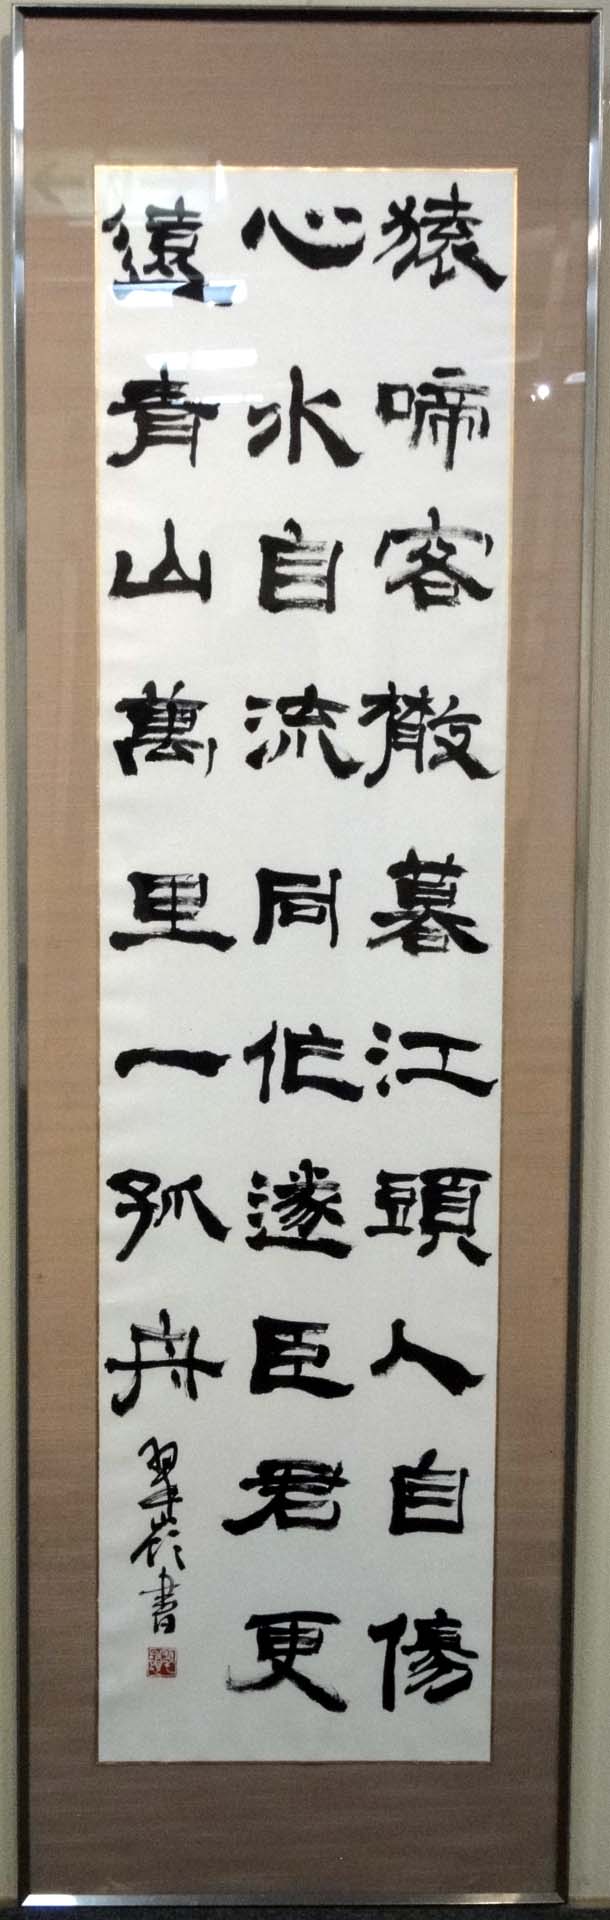 猿啼客散暮江頭人自傷
心水自流同作逐臣君更
遠青山萬里一孤舟
翠嶺書